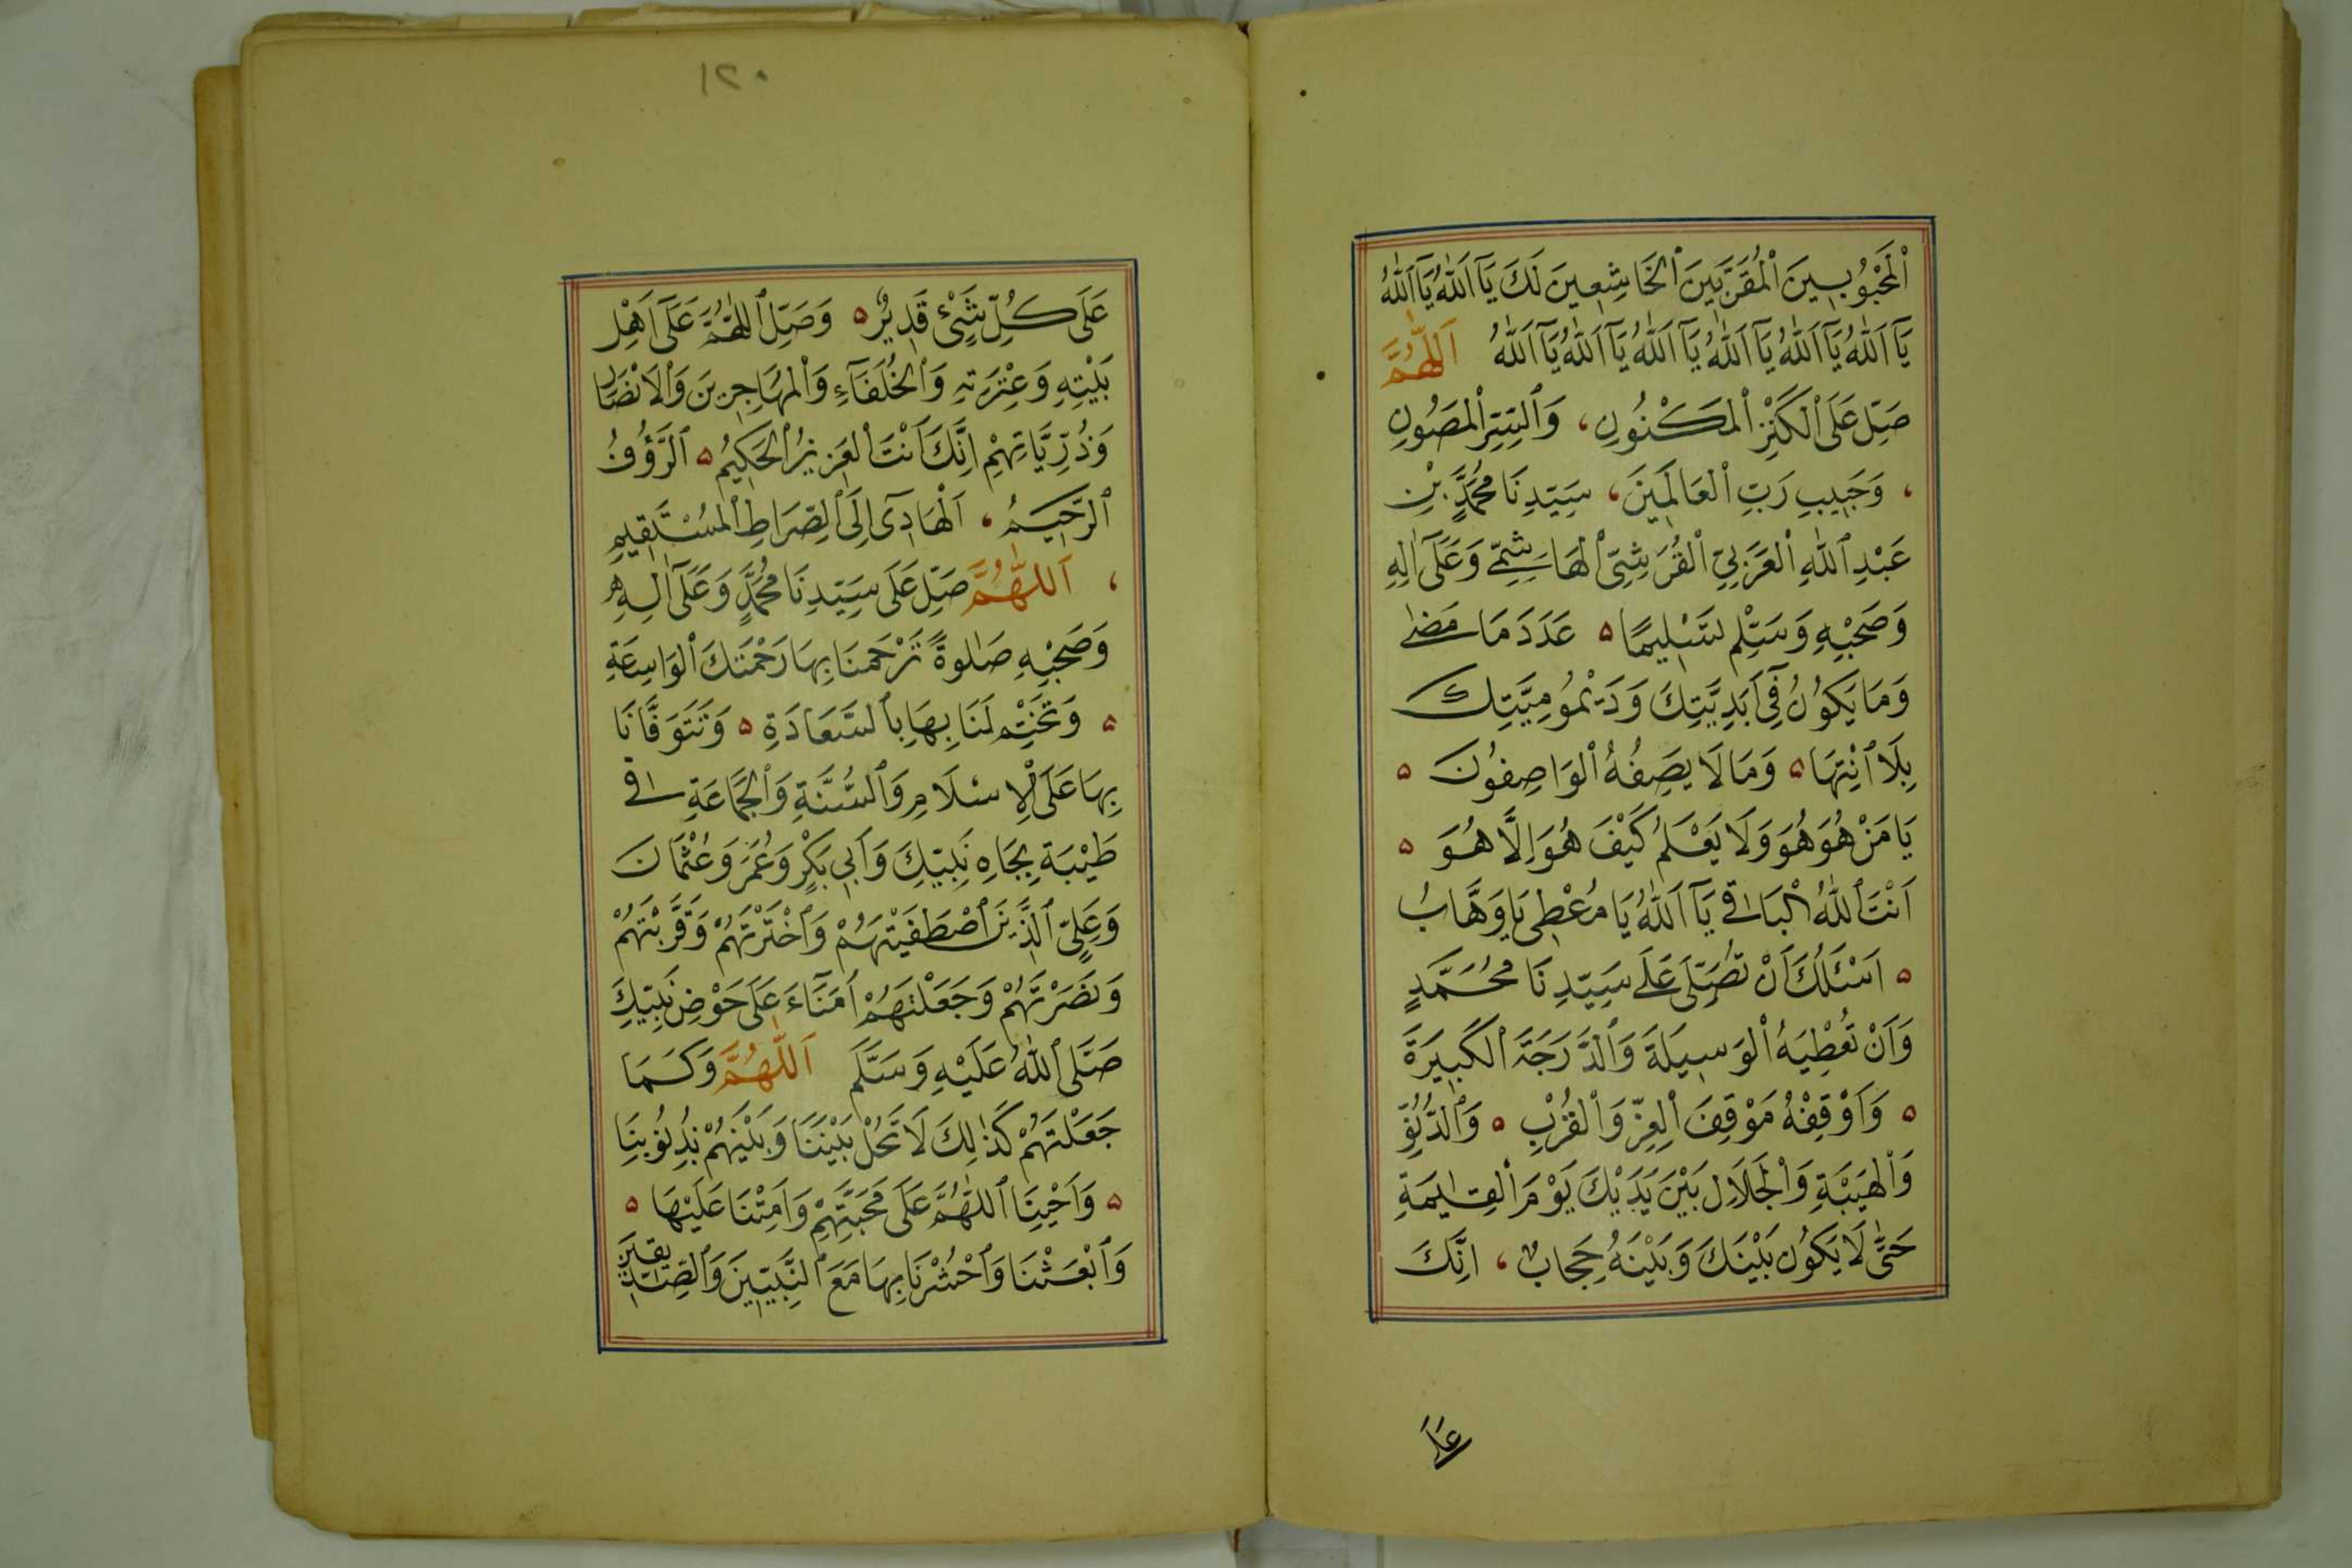 اَلْمَحْبُوبِينَ الْمُقَرَّبِينَ الْخَاشِعِينَ لَكَ يَآ اَللّٰهُ يَآ اَللّٰهُ
يَآ اَللّٰهُ يَآ اَللّٰهُ يَآ اَللّٰهُ يَآ اَللّٰهُ يَآ اَللّٰهُ يَآ اَللّٰهُ اَللّٰهُمَّ
صَلِّ عَلَى الْكَنْزِ الْمَكْنُونِ، وَالسِّرِّ الْمَصُونِ
، وَحَبِيبِ رَبِّ الْعَالَمِينَ، سَيِّدِنَا مُحَمَّدٍ بْنِ
عَبْدِ اللّٰهِ الْعَرَبِيِّ الْقُرَشِيِّ الْهَاشِمِيِّ وَعَلَىٓ اٰلِهِ
وَصَحْبِهِ وَسَلِّمْ تَسْلِيمًا ۵ عَدَدَ مَا مَضٰى
وَمَا يَكُونُ فِىٓ اَبَدِيَّتِكَ وَدَيْمُومِيَّتِكَ
بِلَا انْتِهَا ۵ وَمَا لَا يَصِفُهُ الْوَاصِفُونَ ۵
يَا مَنْ هُوَ هُوَ وَلَا يَعْلَمُ كَيْفَ هُوَ اِلَّا هُوَ ۵
اَنْتَ اللّٰهُ الْبَاقِى يَآ اَللّٰهُ يَا مُعْطِى يَا وَهَّابُ
۵ اَسْئَلُكَ اَنْ تُصَلِّىَ عَلٰى سَيِّدِنَا مُحَمَّدٍ
وَاَنْ تُعْطِيَهُ الْوَسِيلَةَ وَالدَّرَجَةَ الْكَبِيرَةَ
۵ وَاَوْقِفْهُ مَوْقِفَ الْعِزِّ وَالْقُرْبِ ۵ وَالدُّنُوِّ
وَالْهَيْبَةِ وَالْجَلَالِ بَيْنَ يَدَيْكَ يَوْمَ الْقِيٰمَةِ
حَتّٰى لَا يَكُونَ بَيْنَكَ وَبَيْنَهُ حِجَابٌ، اِنَّكَ
عَلَى
١٢٠
عَلَى كُلِّ شَىْءٍ قَدِيرٌ ۵ وَصَلِّ اللّٰهُمَّ عَلَىٓ اَهْلِ
بَيْتِهِ وَعِتْرَتِهِ وَالْخُلَفَآءِ وَالْمُهَاجِرِينَ وَالْاَنْصَارِ
وَذُرِّيَّاتِهِمْ اِنَّكَ اَنْتَ الْعَزِيزُ الْحَكِيمُ ۵ اَلرَّؤُفُ
الرَّحِيمُ، اَلْهَادِىٓ اِلَى الصِّرَاطِ الْمُسْتَقِيمِ
، اَللّٰهُمَّ صَلِّ عَلَى سَيِّدِنَا مُحَمَّدٍ وَعَلَىٓ اٰلِهِ
وَصَحْبِهِ صَلٰوةً تَرْحَمُنَا بِهَا رَحْمَتَكَ الْوَاسِعَةِ
۵ وَتَخْتِمُ لَنَا بِهَا بِالسَّعَادَةِ ۵ وَتَتَوَفَّانَا
بِهَا عَلَى الْاِسْلَامِ وَالسُّنَّةِ وَالْجَمَاعَةِ فِى
طَيْبَةِ بِجَاهِ نَبِيِّكَ وَاَبِى بَكْرٍ وَعُمَرَ وَعُثْمَانَ
وَعَلِىٍّ الَّذِينَ اصْطَفَيْتَهُمْ وَاخْتَرْتَهُمْ وَقَرَّبْتَهُمْ
وَنَصَرْتَهُمْ وَجَعَلْتَهُمْ اُمَنَآءَ عَلَى حَوْضِ نَبِيِّكَ
صَلَّى اللّٰهُ عَلَيْهِ وَسَلَّمَ اَللّٰهُمَّ وَكَمَا
جَعَلْتَهُمْ كَذٰلِكَ لَا تَحُلْ بَيْنَنَا وَبَيْنَهُمْ بِذُنُوبِنَا
۵ وَاَحْيِنَا اللّٰهُمَّ عَلَى مَحَبَّتِهِمْ وَاَمِتْنَا عَلَيْهَا ۵
وَابْعَثْنَا وَاحْشُرْنَا بِهَا مَعَ النَّبِيِّينَ وَالصِّدِّيقِينَ